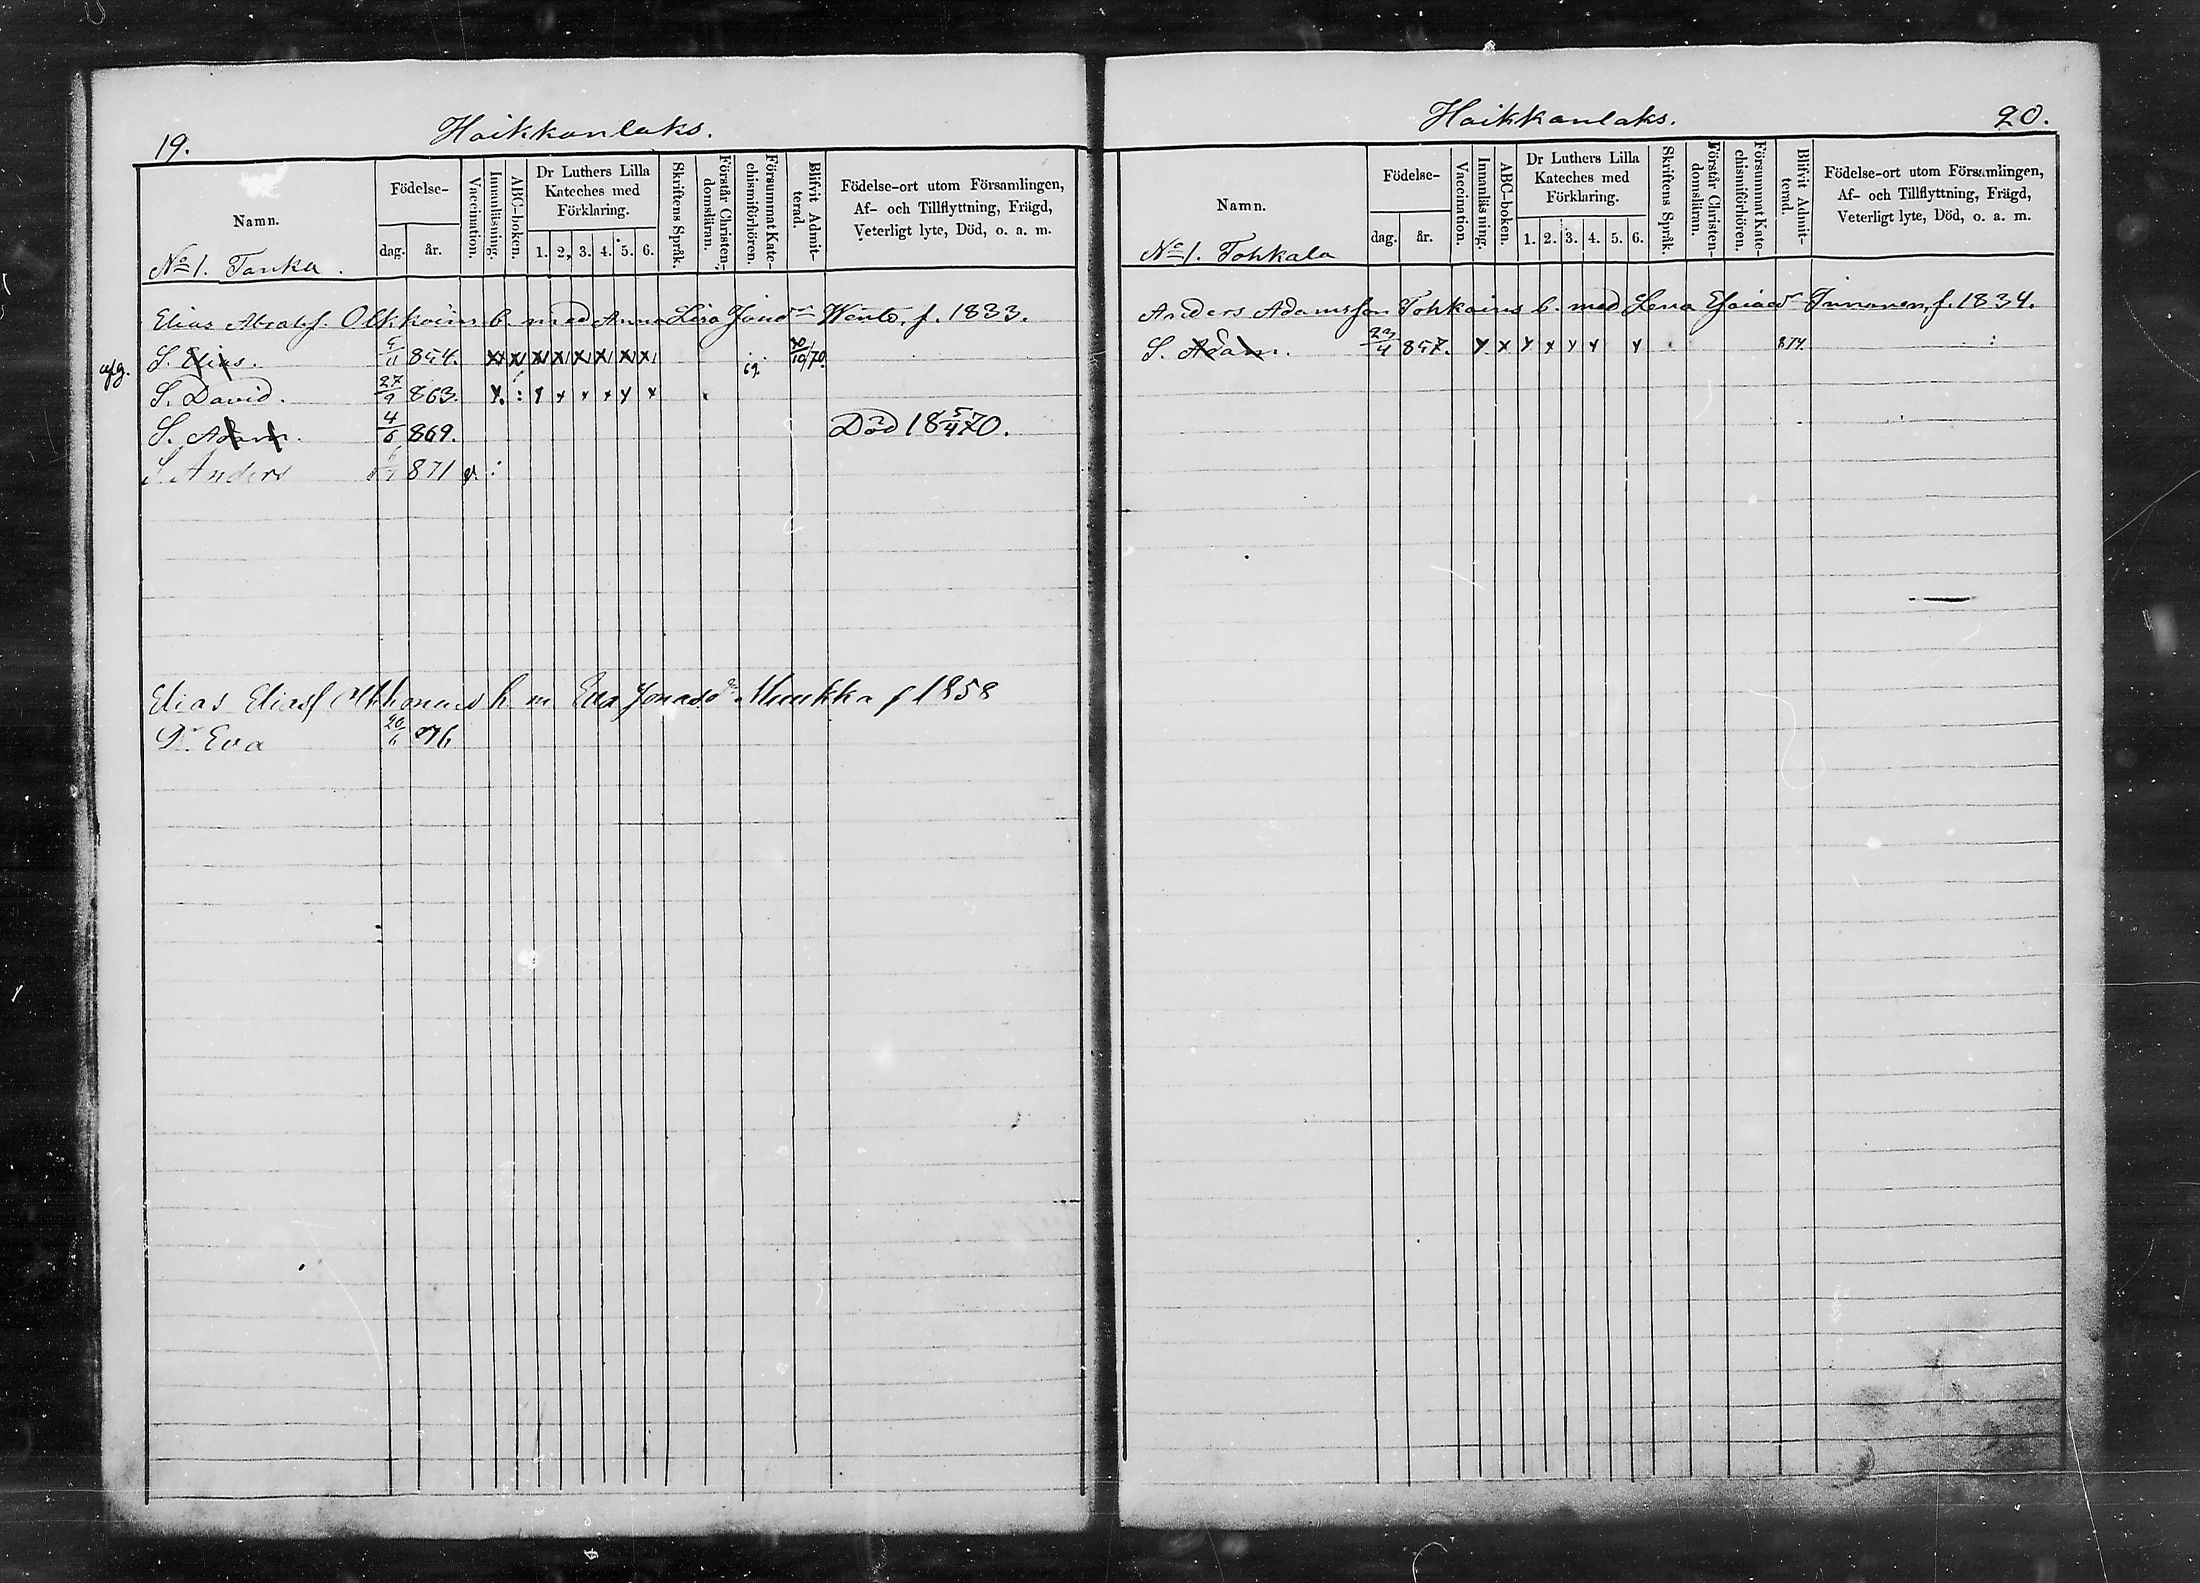 19.
Haikkanlaks.
Namn.
Födelse-
dag.
år.
Vaccination.
Innanläsning.
ABC-boken.
Dr Luthers Lilla
Kateches med
Förklaring.
1. 2, 3. 4. 5. 6.
Skriftens Språk.
Förstår Christen-
domsläran.
Försummat Kate-
chismiförhören.
Blifvit Admit-
terad.
Födelse-ort utom Församlingen,
Af- och Tillflyttning, Frägd,
Veterligt lyte, Död, o. a. m.
No 1. Tanka.
Elias Abrahs. Olkkoins b. med Anna Lisa f. 1833.
afg. S. Elias. 854. x x x x x x x x 69. 10/70.
S. David. 27/9 863.
S. Adam. 4/6 869. Död 18 5/4 70.
S. Anders 871 v. :
Elias Eliass b m Eva Jonasdr Munkka f 1858
Dr. Eva 20/6 876
Haikkanlaks.
20.
Namn.
Födelse-
dag.
år.
Vaccination.
Innanläsning.
ABC-boken.
Dr Luthers Lilla
Kateches med
Förklaring.
1. 2. 3. 4. 5. 6.
Skriftens Språk.
Förstår Christen-
domsläran.
Försummat Kate-
chismiförhören.
Blifvit Admit-
terad.
Födelse-ort utom Församlingen,
Af- och Tillflyttning, Frägd,
Veterligt lyte, Död, o. a. m.
No 1. Tohkala
Anders Adamsson Tohkoins b. med Lena Esaiasdr Innanen, f. 1834.
S. Adam. 857. x x x x x x x 874.